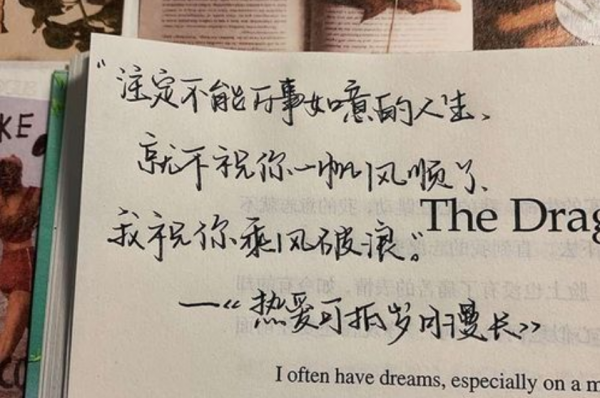 KE
“注定不能万事如意的人生、
就不祝你一帆风顺了、
我祝你乘风破浪。”
The Drag
—《热爱可抵岁月漫长》
I often have dreams, especially on a m